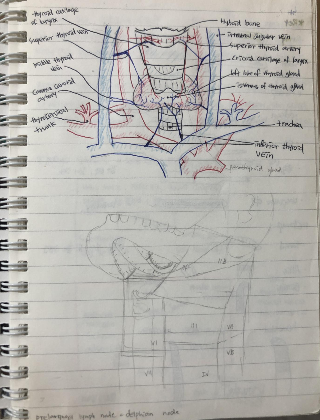 thyroid cartilage
of larynx
superior thyroid vein
middle thyroid
vein
common carotid
artery
thyrocervical
trunk
Hyoid bone
internal jugular vein
superior thyroid artery
cricoid cartilage of larynx
left lobe of thyroid gland
isthmus of thyroid gland
trachea
inferior thyroid
vein
parathyroid gland
IIB
III
VI
VB
IV
lymph node - delphian node